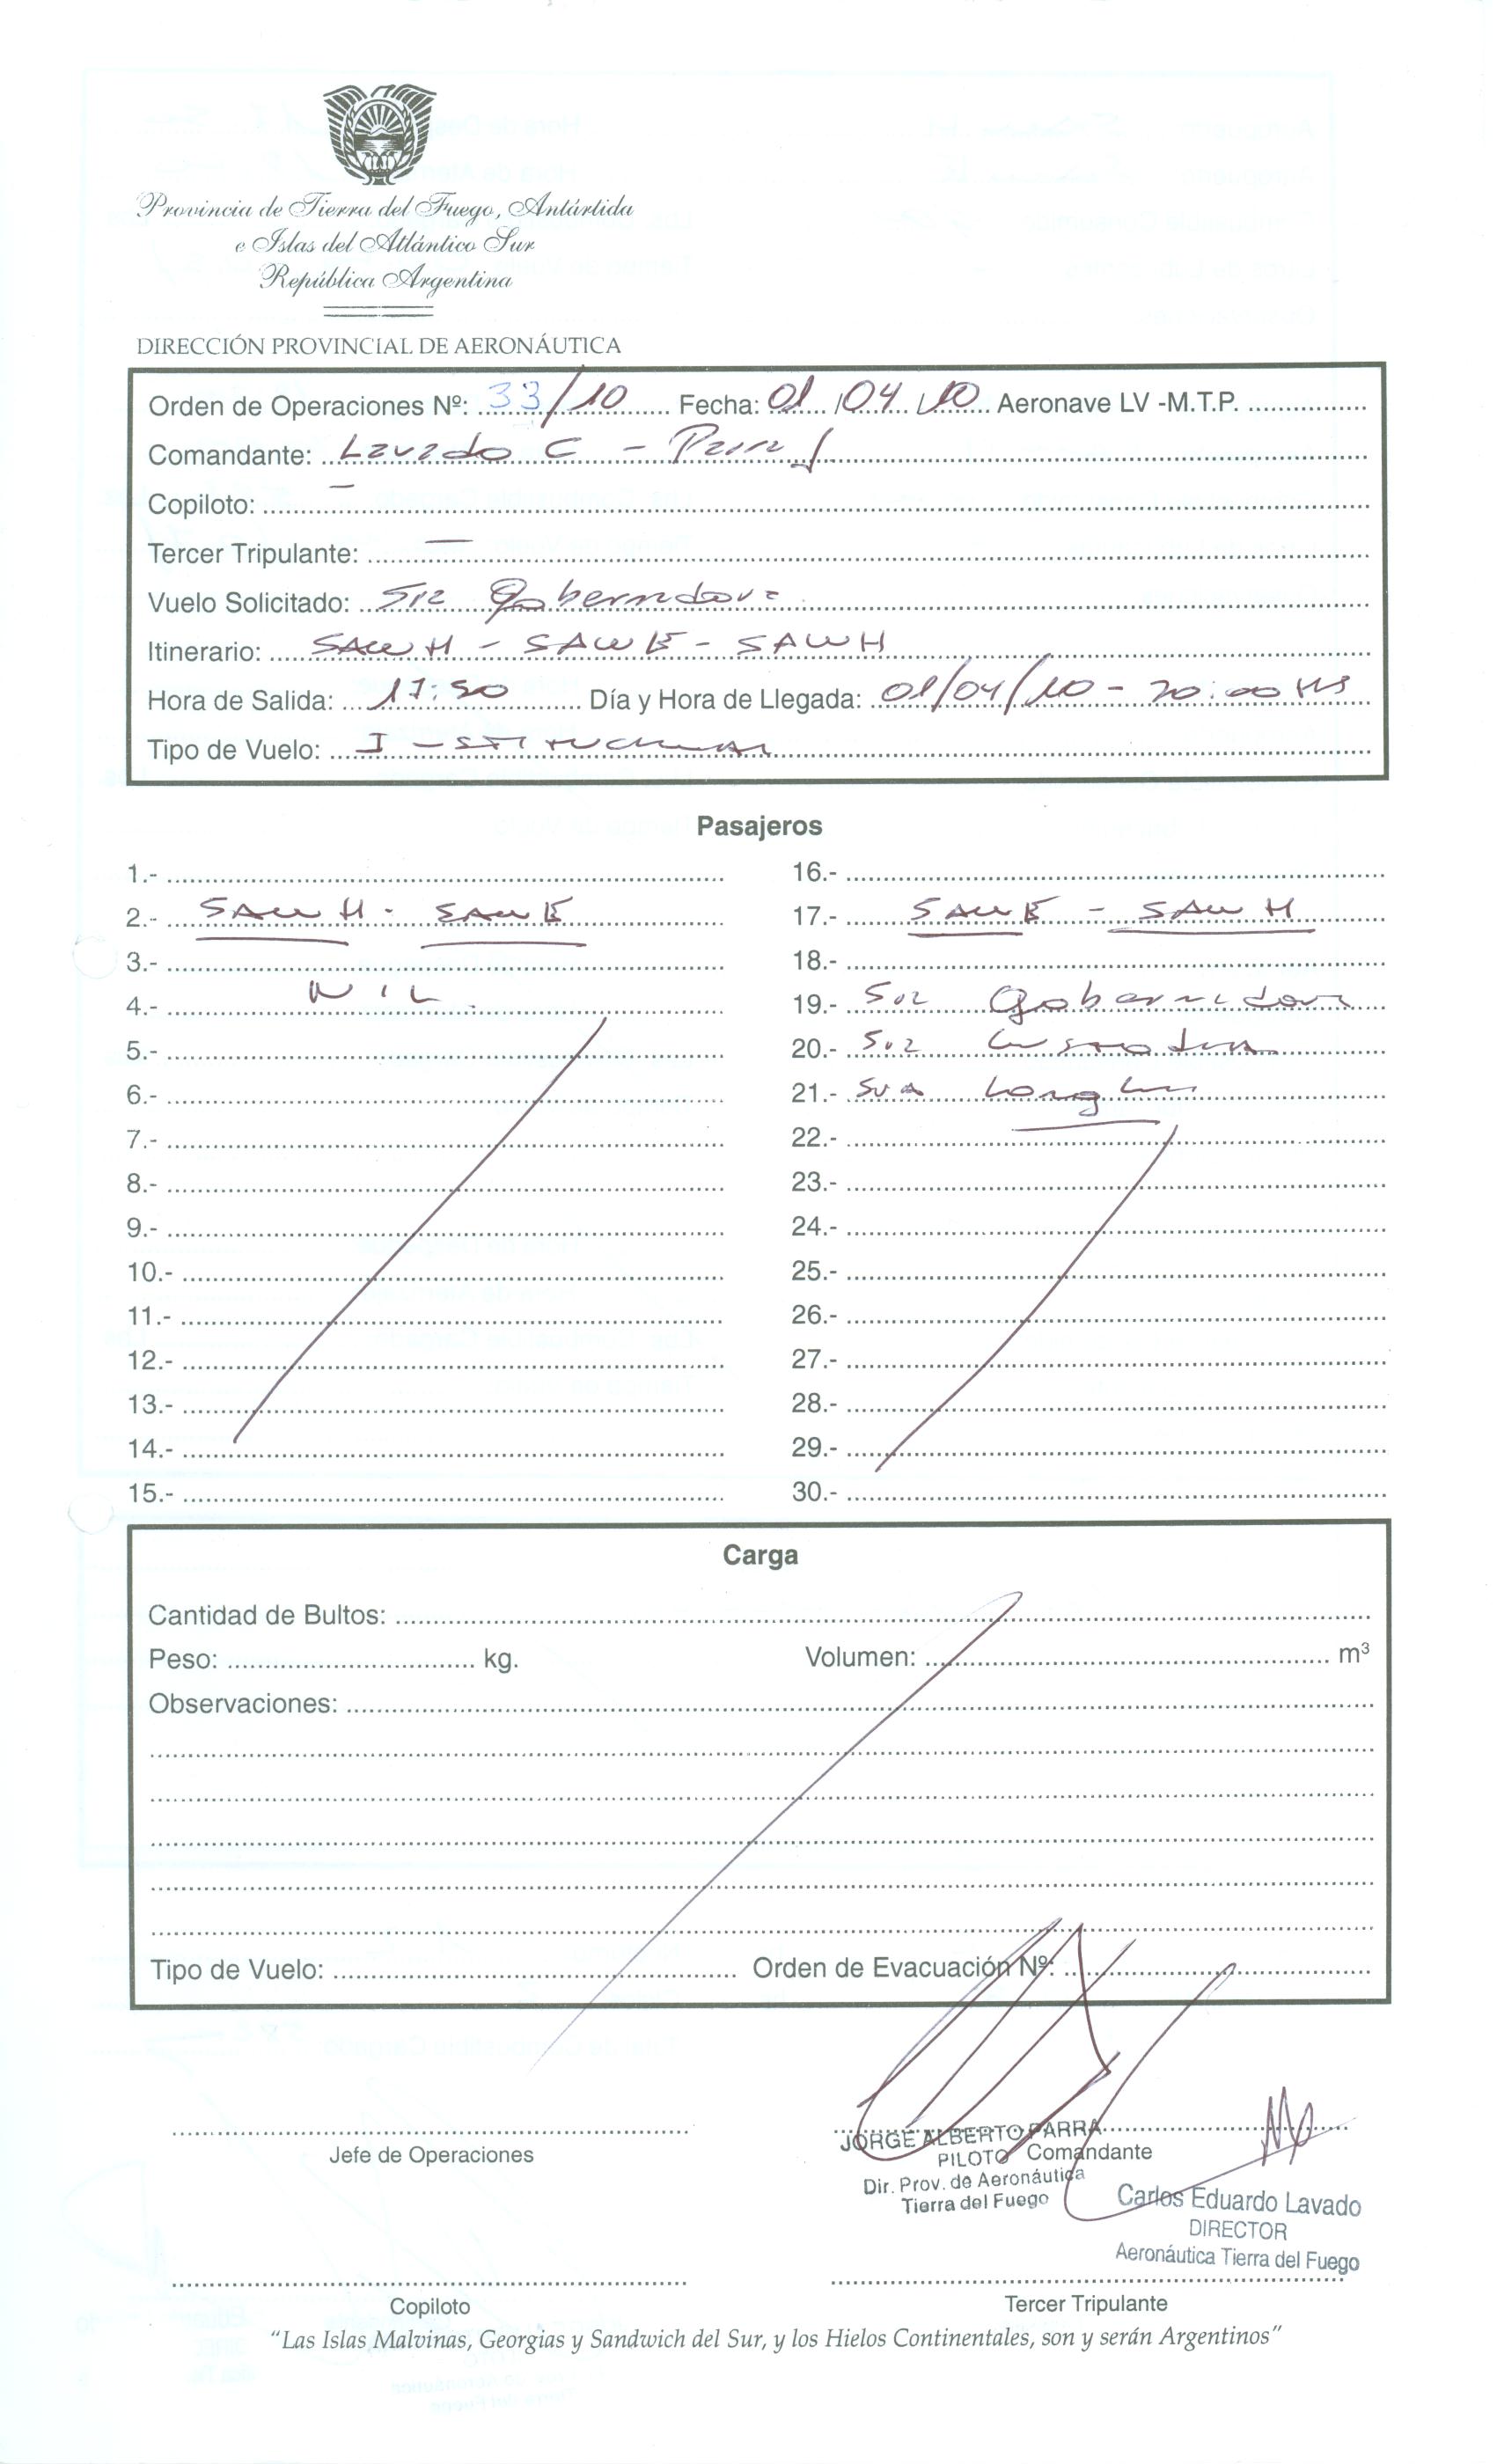 Provincia de Tierra del Fuego, Antártida
e Islas del Atlántico Sur
República Argentina
DIRECCIÓN PROVINCIAL DE AERONÁUTICA
Orden de Operaciones Nº: 33/10 Fecha: 01/04/10 Aeronave LV -M.T.P.
Comandante: Lavado C - Parra J
Copiloto: —
Tercer Tripulante: —
Vuelo Solicitado: Sra Gobernadora
Itinerario: SAWH - SAWE - SAWH
Hora de Salida: 17:50 Día y Hora de Llegada: 01/04/10 - 20:00 HS
Tipo de Vuelo: Institucional
Pasajeros
1.-
2.- SAWH - SAWE
3.-
4.- NIL.
5.-
6.-
7.-
8.-
9.-
10.-
11.-
12.-
13.-
14.-
15.-
16.-
17.- SAWE - SAWH
18.-
19.- Sra Gobernadora
20.- Sra
21.- Sra
22.-
23.-
24.-
25.-
26.-
27.-
28.-
29.-
30.-
Carga
Cantidad de Bultos:
Peso: kg. Volumen: m³
Observaciones:
Tipo de Vuelo: Orden de Evacuación Nº:
Jefe de Operaciones
JORGE ALBERTO PARRA
PILOTO Comandante
Dir. Prov. de Aeronáutica
Tierra del Fuego
Carlos Eduardo Lavado
DIRECTOR
Aeronáutica Tierra del Fuego
Copiloto
Tercer Tripulante
"Las Islas Malvinas, Georgias y Sandwich del Sur, y los Hielos Continentales, son y serán Argentinos"